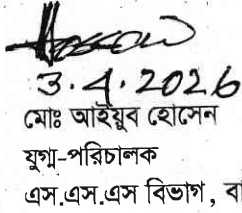 3.4.2026
মোঃ আইয়ুব হোসেন
যুগ্ম-পরিচালক
এস.এস.এস বিভাগ, বা